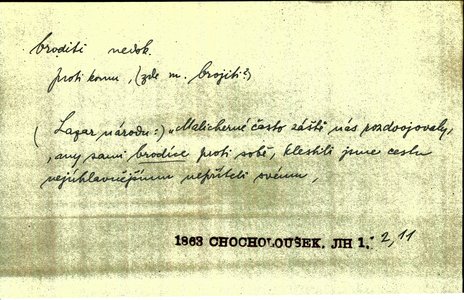 broditi nedok.
proti komu, (zde m. brojiti?)
(Lazar národu:) „Malicherné často záští nás rozdvojovaly,
, any sami brodíce proti sobě, klestili jsme cestu
nejúhlavnějšímu nepříteli svému,
1863 CHOCHOLOUŠEK, JIH 1,: 2,11